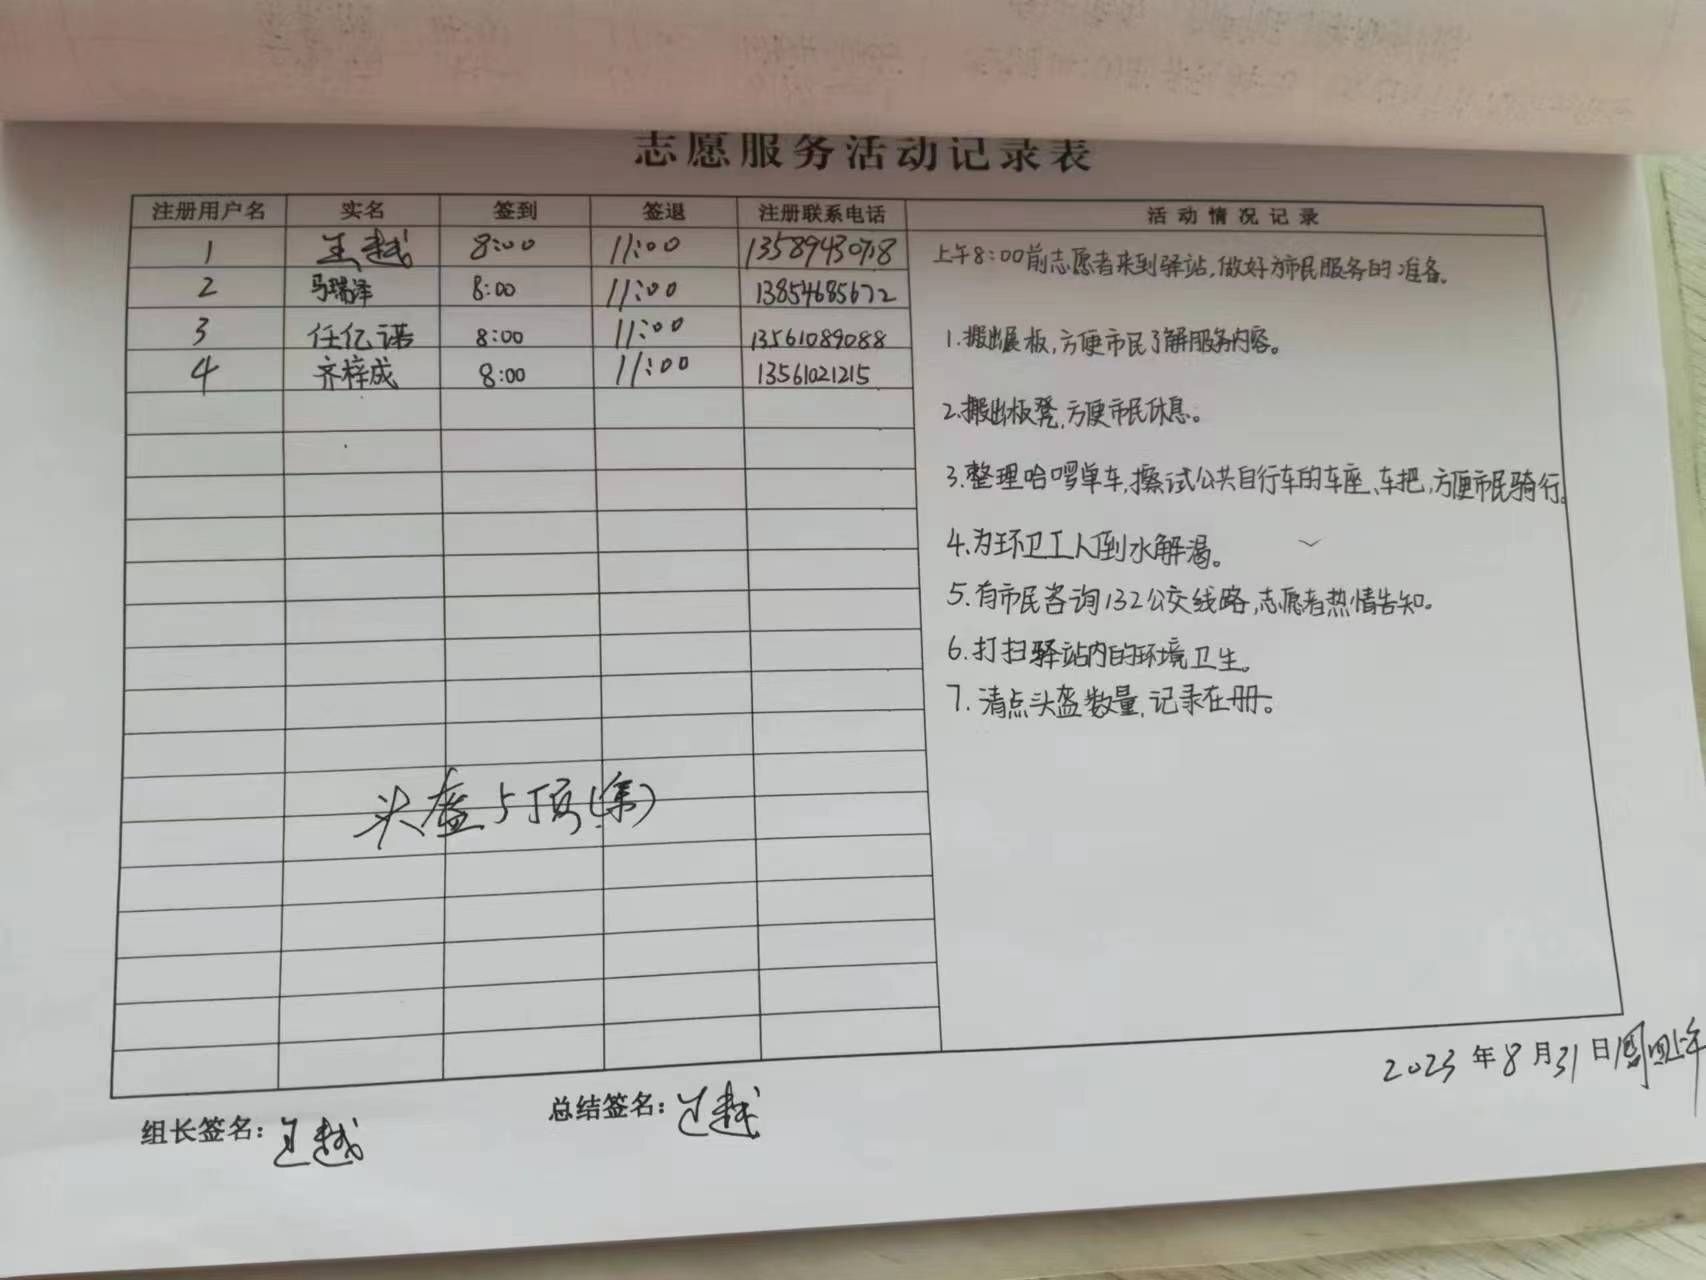 志愿服务活动记录表
注册用户名 实名 签到 签退 注册联系电话 活动情况记录
1 王越 8:00 11:00 13589430718
2 马瑞泽 8:00 11:00 13854685672
3 任亿诺 8:00 11:00 13561089088
4 齐梓成 8:00 11:00 13561021215
上午8:00前志愿者来到驿站,做好为市民服务的准备。
1.搬出展板,方便市民了解服务内容。
2.搬出板凳,方便市民休息。
3.整理哈啰单车,擦试公共自行车的车座、车把,方便市民骑行。
4.为环卫工人倒水解渴。
5.有市民咨询132公交线路,志愿者热情告知。
6.打扫驿站内的环境卫生。
7.清点头盔数量,记录在册。
头盔5顶
组长签名: 王越
总结签名: 王越
2023年8月31日 周四上午